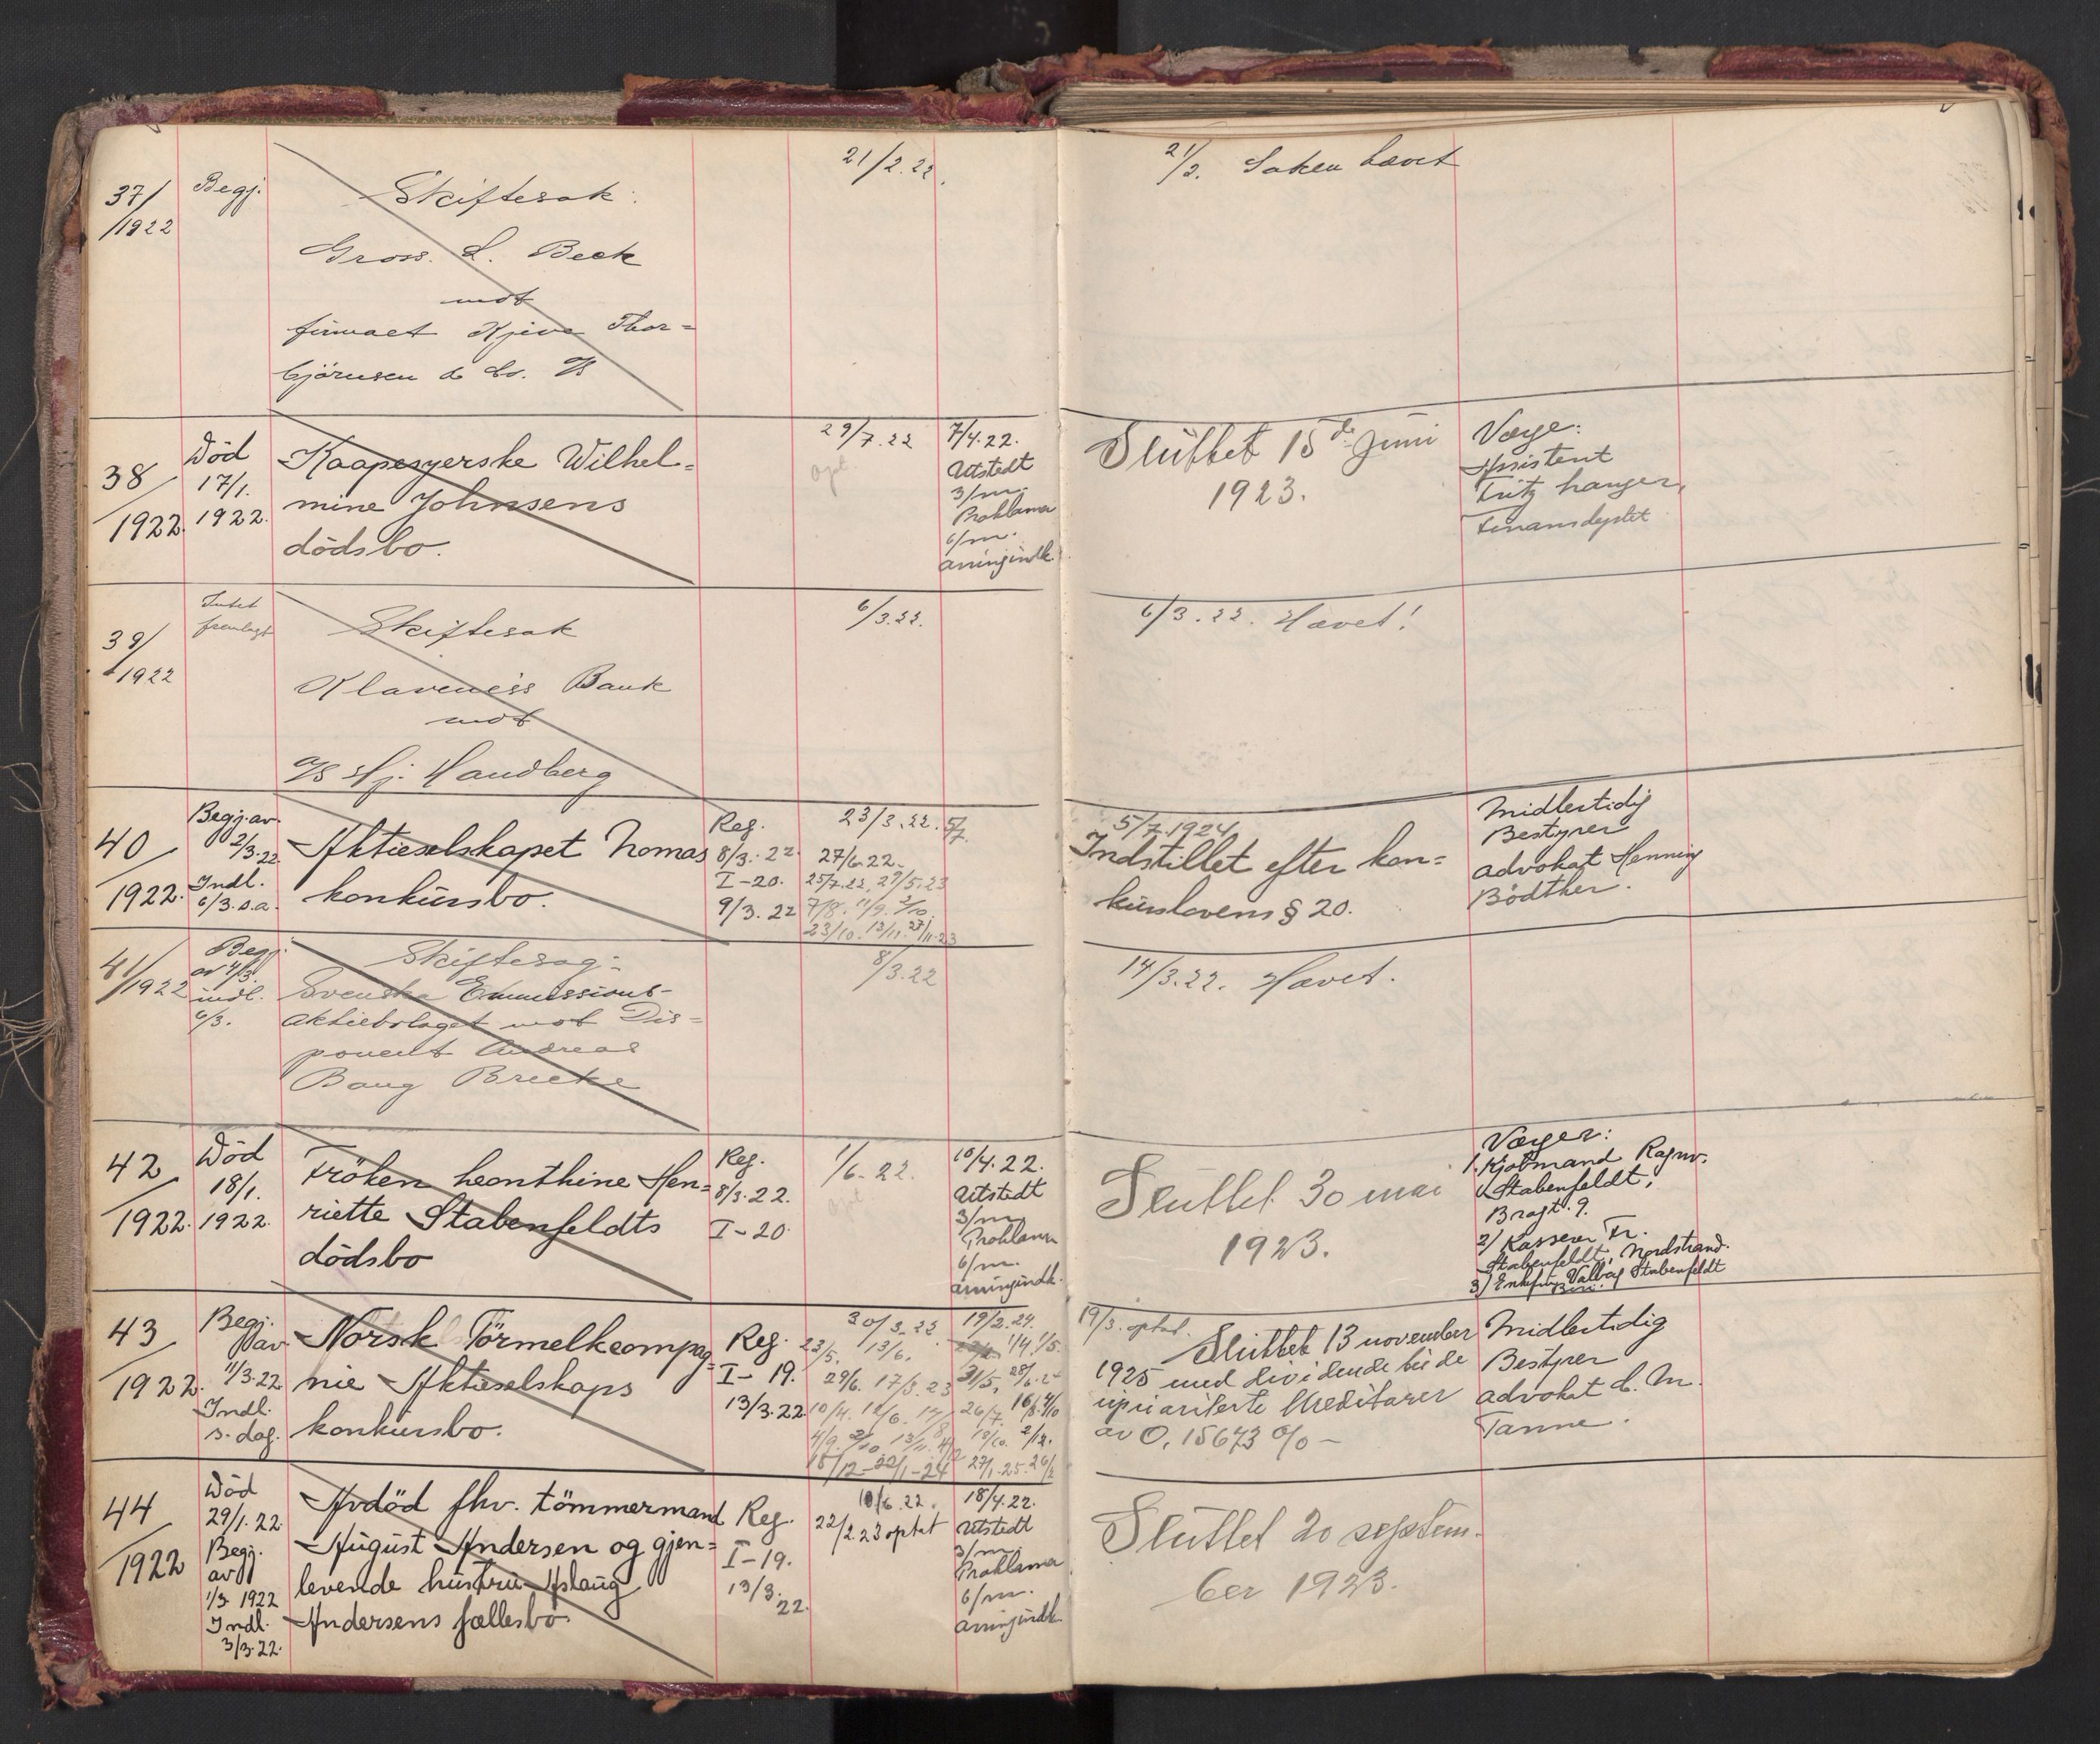 37/1922 Begj. Skiftesak: 21/2.22. 21/2. Saken hævet
Gross. L. Beck
mot
firmaet Kjive Thor=
bjørnsen & Co. A/S
38/1922. Död 17/1. 1922. Kaapesyerske Wilhel= 29/7.22 7/4.22.
mine Johnsens
dödsbo.
Utstedt
3/m.
Proklama
6/m.
Sluttet 15de Juni
1923.
Værge:
Assistent
Fritz
39/1922 Intet fremlagt Skiftesak 6/3.22. 6/3.22. Hævet!
Klaveness Bank
mot
A/S Hj. Sandberg
40/1922. Begj. av 2/3.22 Indl. 6/3. s.a. Aktieselskapet Nomas
konkursbo.
Reg.
8/3.22
I-20.
9/3.22
23/3.22. 5/7.
27/6.22.
25/7.22, 29/5.23
7/8. 11/9. 2/10.
23/10. 13/11. 27/11.23
5/7.1924
Indstillet efter kon=
kurslovens § 20.
Midlertidig
Bestyrer
advokat Henning
Bödtker.
41/1922 Begj. av 4/3. indl. 6/3. Skiftesag: 8/3.22 14/3.22. Hævet.
Svenska Emmissions-
aktiebolaget mot Dis=
ponent Andreas
Baug
42/1922. Död 18/1. 1922. Fröken Leonthine Hen=
riette Stabenfeldts
dödsbo
Reg.
8/3.22.
I-20
1/6.22.
10/4.22.
Utstedt
3/m.
Proklama
6/m.
Sluttet 30 mai
1923.
Værger:
1. Kjøbmand Ragnv.
Stabenfeldt,
Bragt. 9.
2/ Kasserer Fr.
Stabenfeldt, Nordstrand.
3/ Enkefru Valborg Stabenfeldt
43/1922. Begj. av 11/3.22 Indl. s. dag. Norsk Törmelkcompag=
nie Aktieselskaps
konkursbo.
Reg.
I-19.
13/3.22
20/3.22
23/5. 13/6.
29/6. 17/3.23
15/12-22/1-24
19/2.24.
1/4. 1/5.
27/1.25.
19/3. optat.
Sluttet 13 november
1925 med dividende til de
upriviligerte kreditorer
av 0,15673 % -
Midlertidig
Bestyrer
advokat C. M.
Tanne.
44/1922 Död 29/1.22. Begj. av 1/3 1922 Indl. 3/3.22. Avdöd fhv. tömmermand
August Andersen og gjen=
levende hustru Aslaug
Andersens fællesbo.
Reg.
I-19.
13/3.
22.
10/6.22.
22/2.23 optat
18/4.22.
Utstedt
3/m.
Proklama
6/m.
Sluttet 20 septem-
ber 1923.